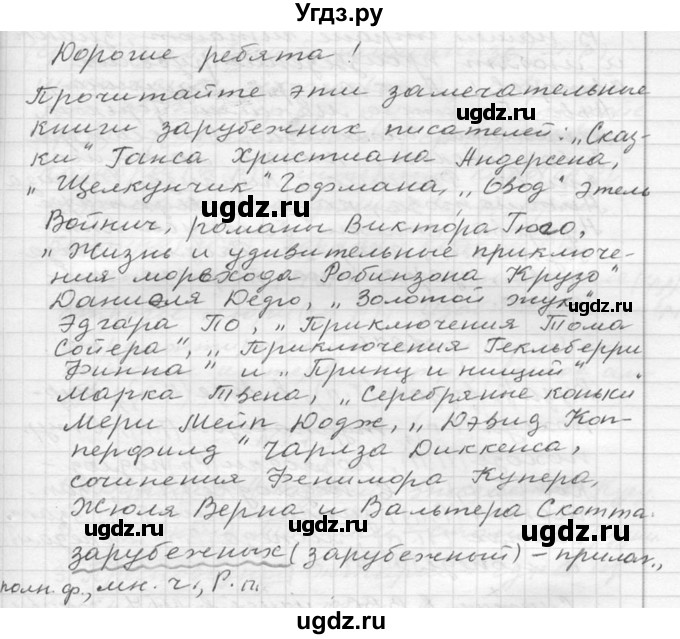 Угдз.ру
Дорогие ребята!
Прочитайте эти замечательные
книги зарубежных писателей: „Сказ-
ки" Ганса Христиана Андерсена,
„Щелкунчик" Гофмана, „Овод" Этель
Войнич, романы Виктора Гюго,
„Жизнь и удивительные приключе-
ния морехода Робинзона Крузо"
Даниеля Дефо, „Золотой жук"
Эдгара По, „Приключения Тома
Сойера", „Приключения Гекльберри
Финна" и „Принц и нищий"
Марка Твена, „Серебряные коньки"
Мери Мейп Додж, „Дэвид Коп-
перфилд" Чарлза Диккенса,
сочинения Фенимора Купера,
Жюля Верна и Вальтера Скотта.
зарубежных (зарубежный) – прилаг.,
полн. ф., мн. ч., Р. п.
ugdz.ru
ugdz.ru
ugdz.ru
ugdz.ru
ugdz.ru
ugdz.ru
ugdz.ru
ugdz.ru
ugdz.ru